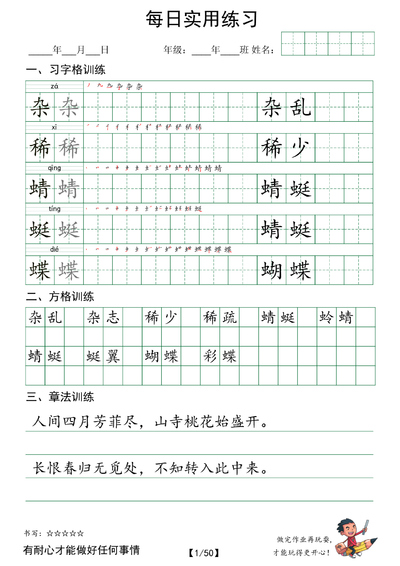 每日实用练习
____年___月___日 年级：____年____班 姓名：
一、习字格训练
zá
杂 杂 杂 乱
xī
稀 稀 稀 少
qīng
蜻 蜻 蜻 蜓
tíng
蜓 蜓 蜻 蜓
dié
蝶 蝶 蝴 蝶
二、方格训练
杂 乱 杂 志 稀 少 稀 疏 蜻 蜓 蛉 蜻
蜻 蜓 蜓 翼 蝴 蝶 彩 蝶
三、章法训练
人间四月芳菲尽，山寺桃花始盛开。
长恨春归无觅处，不知转入此中来。
书写：☆☆☆☆☆
有耐心才能做好任何事情
【1/50】
做完作业再玩耍，
才能玩得更开心！